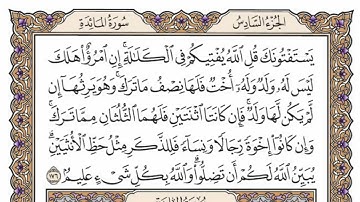 الجزء السادس سورة المائدة
يَسْتَفْتُونَكَ قُلِ ٱللَّهُ يُفْتِيكُمْ فِى ٱلْكَلَٰلَةِ ۚ إِنِ ٱمْرُؤٌا۟ هَلَكَ
لَيْسَ لَهُۥ وَلَدٌ وَلَهُۥٓ أُخْتٌ فَلَهَا نِصْفُ مَا تَرَكَ ۚ وَهُوَ يَرِثُهَآ إِن
لَّمْ يَكُن لَّهَا وَلَدٌ ۚ فَإِن كَانَتَا ٱثْنَتَيْنِ فَلَهُمَا ٱلثُّلُثَانِ مِمَّا تَرَكَ ۚ
وَإِن كَانُوٓا۟ إِخْوَةً رِّجَالًا وَنِسَآءً فَلِلذَّكَرِ مِثْلُ حَظِّ ٱلْأُنثَيَيْنِ ۗ
يُبَيِّنُ ٱللَّهُ لَكُمْ أَن تَضِلُّوا۟ ۗ وَٱللَّهُ بِكُلِّ شَىْءٍ عَلِيمٌۢ ١٧٦